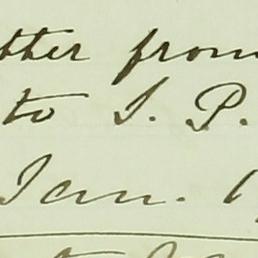 tter from
to S. P.
Jan. 1